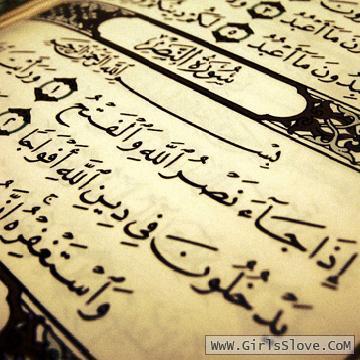 مَآ أَعْبُدُ
دُونَ مَآ أَعْبُدُ ٥ لَكُمْ
سُورَةُ النَّصْرِ
بِسْمِ ٱللَّهِ ٱلرَّحْمَٰنِ ٱلرَّحِيمِ
إِذَا جَآءَ نَصْرُ ٱللَّهِ وَٱلْفَتْحُ ١ وَرَأَيْتَ
يَدْخُلُونَ فِى دِينِ ٱللَّهِ أَفْوَاجًا ٢
وَٱسْتَغْفِرْهُ إِنَّهُ
www.GirlsSlove.Com